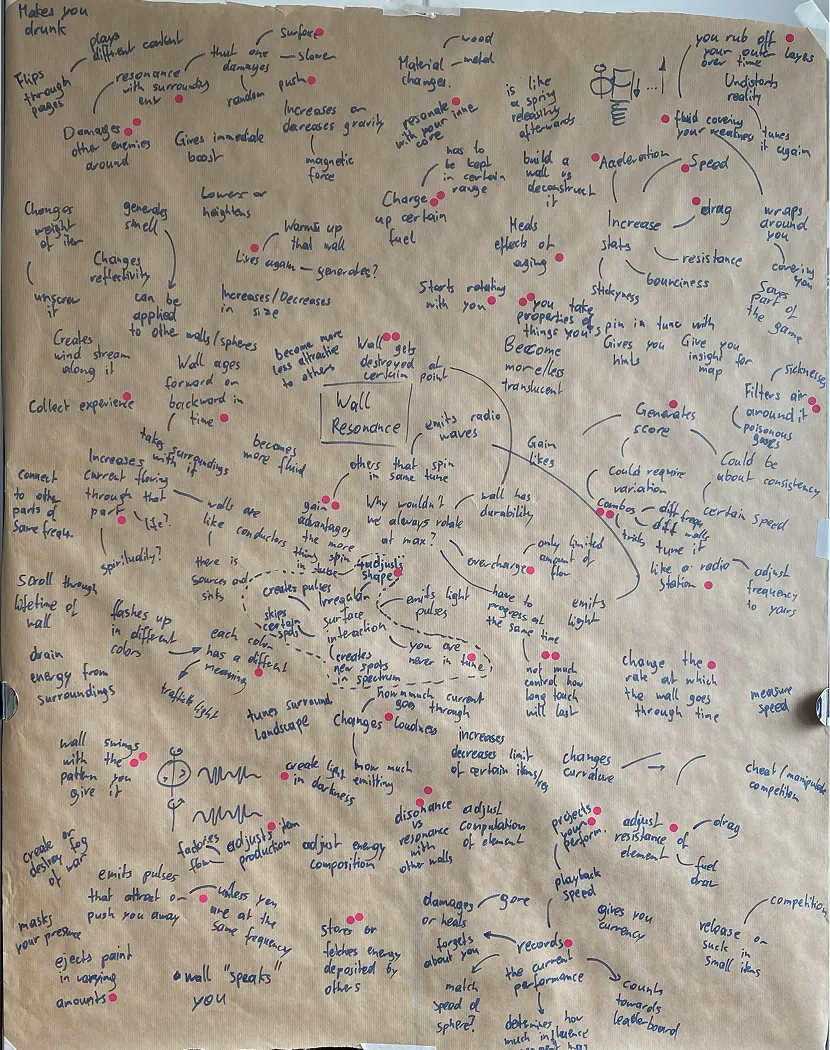 Makes you
drunk
plays
different content
Flips
through
pages
resonance
with surrounding
env
that one
damages
surface
slower
push
random
Damages
other enemies
around
Gives immediate
boost
Increases or
decreases gravity
magnetic
force
Material
changes.
wood
metal
resonate
with your inne
core
is like
a spring
releasing
afterwards
you rub off
your outer layes
over time
Undistorts
reality
fluid covering
your weakness
tunes
it again
has to
be kept
in certain
range
build a
wall vs
deconstruct
it
Acceleration
Speed
drag
Increase
stats
resistance
bounciness
stickyness
wraps
around
you
covering
you
Saves
part of
the game
Changes
weight
of item
unscrew
it
generates
smell
Lowers or
heightens
Changes
reflectivity
can be
applied
to othe walls/spheres
Warms up
that wall
Lives again
generates?
Increases/Decreases
in size
Charge
up certain
fuel
Heals
effects of
aging
Starts rotating
with you
you take
properties of
things your spin in tune with
Creates
wind stream
along it
Wall ages
forward or
backward in
time
become more
less attractive
to others
Wall gets
destroyed at
certain point
Become
more/less
translucent
Gives you
hints
Give you
insight for
map
sicknesses
Filters air
around it
poisonous
gases
Collect experience
Wall
Resonance
emits radio
waves
Generates
score
takes surroundings
with it
becomes
more fluid
Gain
likes
Could require
variation
Could be
about consistency
certain speed
Connect
to othe
parts of
same frequ.
Increases
current flowing
through that
part
life?
spirituality?
walls are
like conductors
there is
sources and
sinks
others that spin
in same tune
gain
advantages
the more
thing spin
in tune
Why wouldn't
we always rotate
at max?
wall has
durability
Combos
diff frequ
diff walls
tricks
tune it
like a radio
station
adjust
frequency
to yours
overcharge
only limited
amount of
flow
Scroll through
lifetime of
wall
flashes up
in different
colors
each color
has a different
meaning
traffic light
creates pulses
skips
certain
spots
adjusts
shape
Irregular
surface
interaction
creates
new spots
in spectrum
emits light
pulses
you are
never in tune
have to
progress at
the same time
emits
light
not much
control how
long touch
will last
drain
energy from
surroundings
change the
rate at which
the wall goes
through time
measure
speed
tunes surround
landscape
how much current
goes
through
Changes loudness
how much
emitting
increases
decreases limit
of certain items/res
changes
curvature
cheat/manipulate
competition
wall swings
with the
pattern you
give it
create light
in darkness
disonance
vs
resonance
with
other walls
adjust
computation
of element
projects
your
perform.
playback
speed
adjust
resistance of
element
drag
fuel
draw
create or
destroy fog
of war
factories
flow
adjusts item
production
adjust energy
composition
emits pulses
that attract or
push you away
unless you
are at the
same frequency
masks
your presence
ejects paint
in varying
amounts
wall "speaks"
you
stores or
fetches energy
deposited by
others
damages
or heals
gore
forgets
about you
records
the current
performance
match
speed of
sphere?
determines how
much influence
counts
towards
leaderboard
gives you
currency
release or
suck in
small items
competition